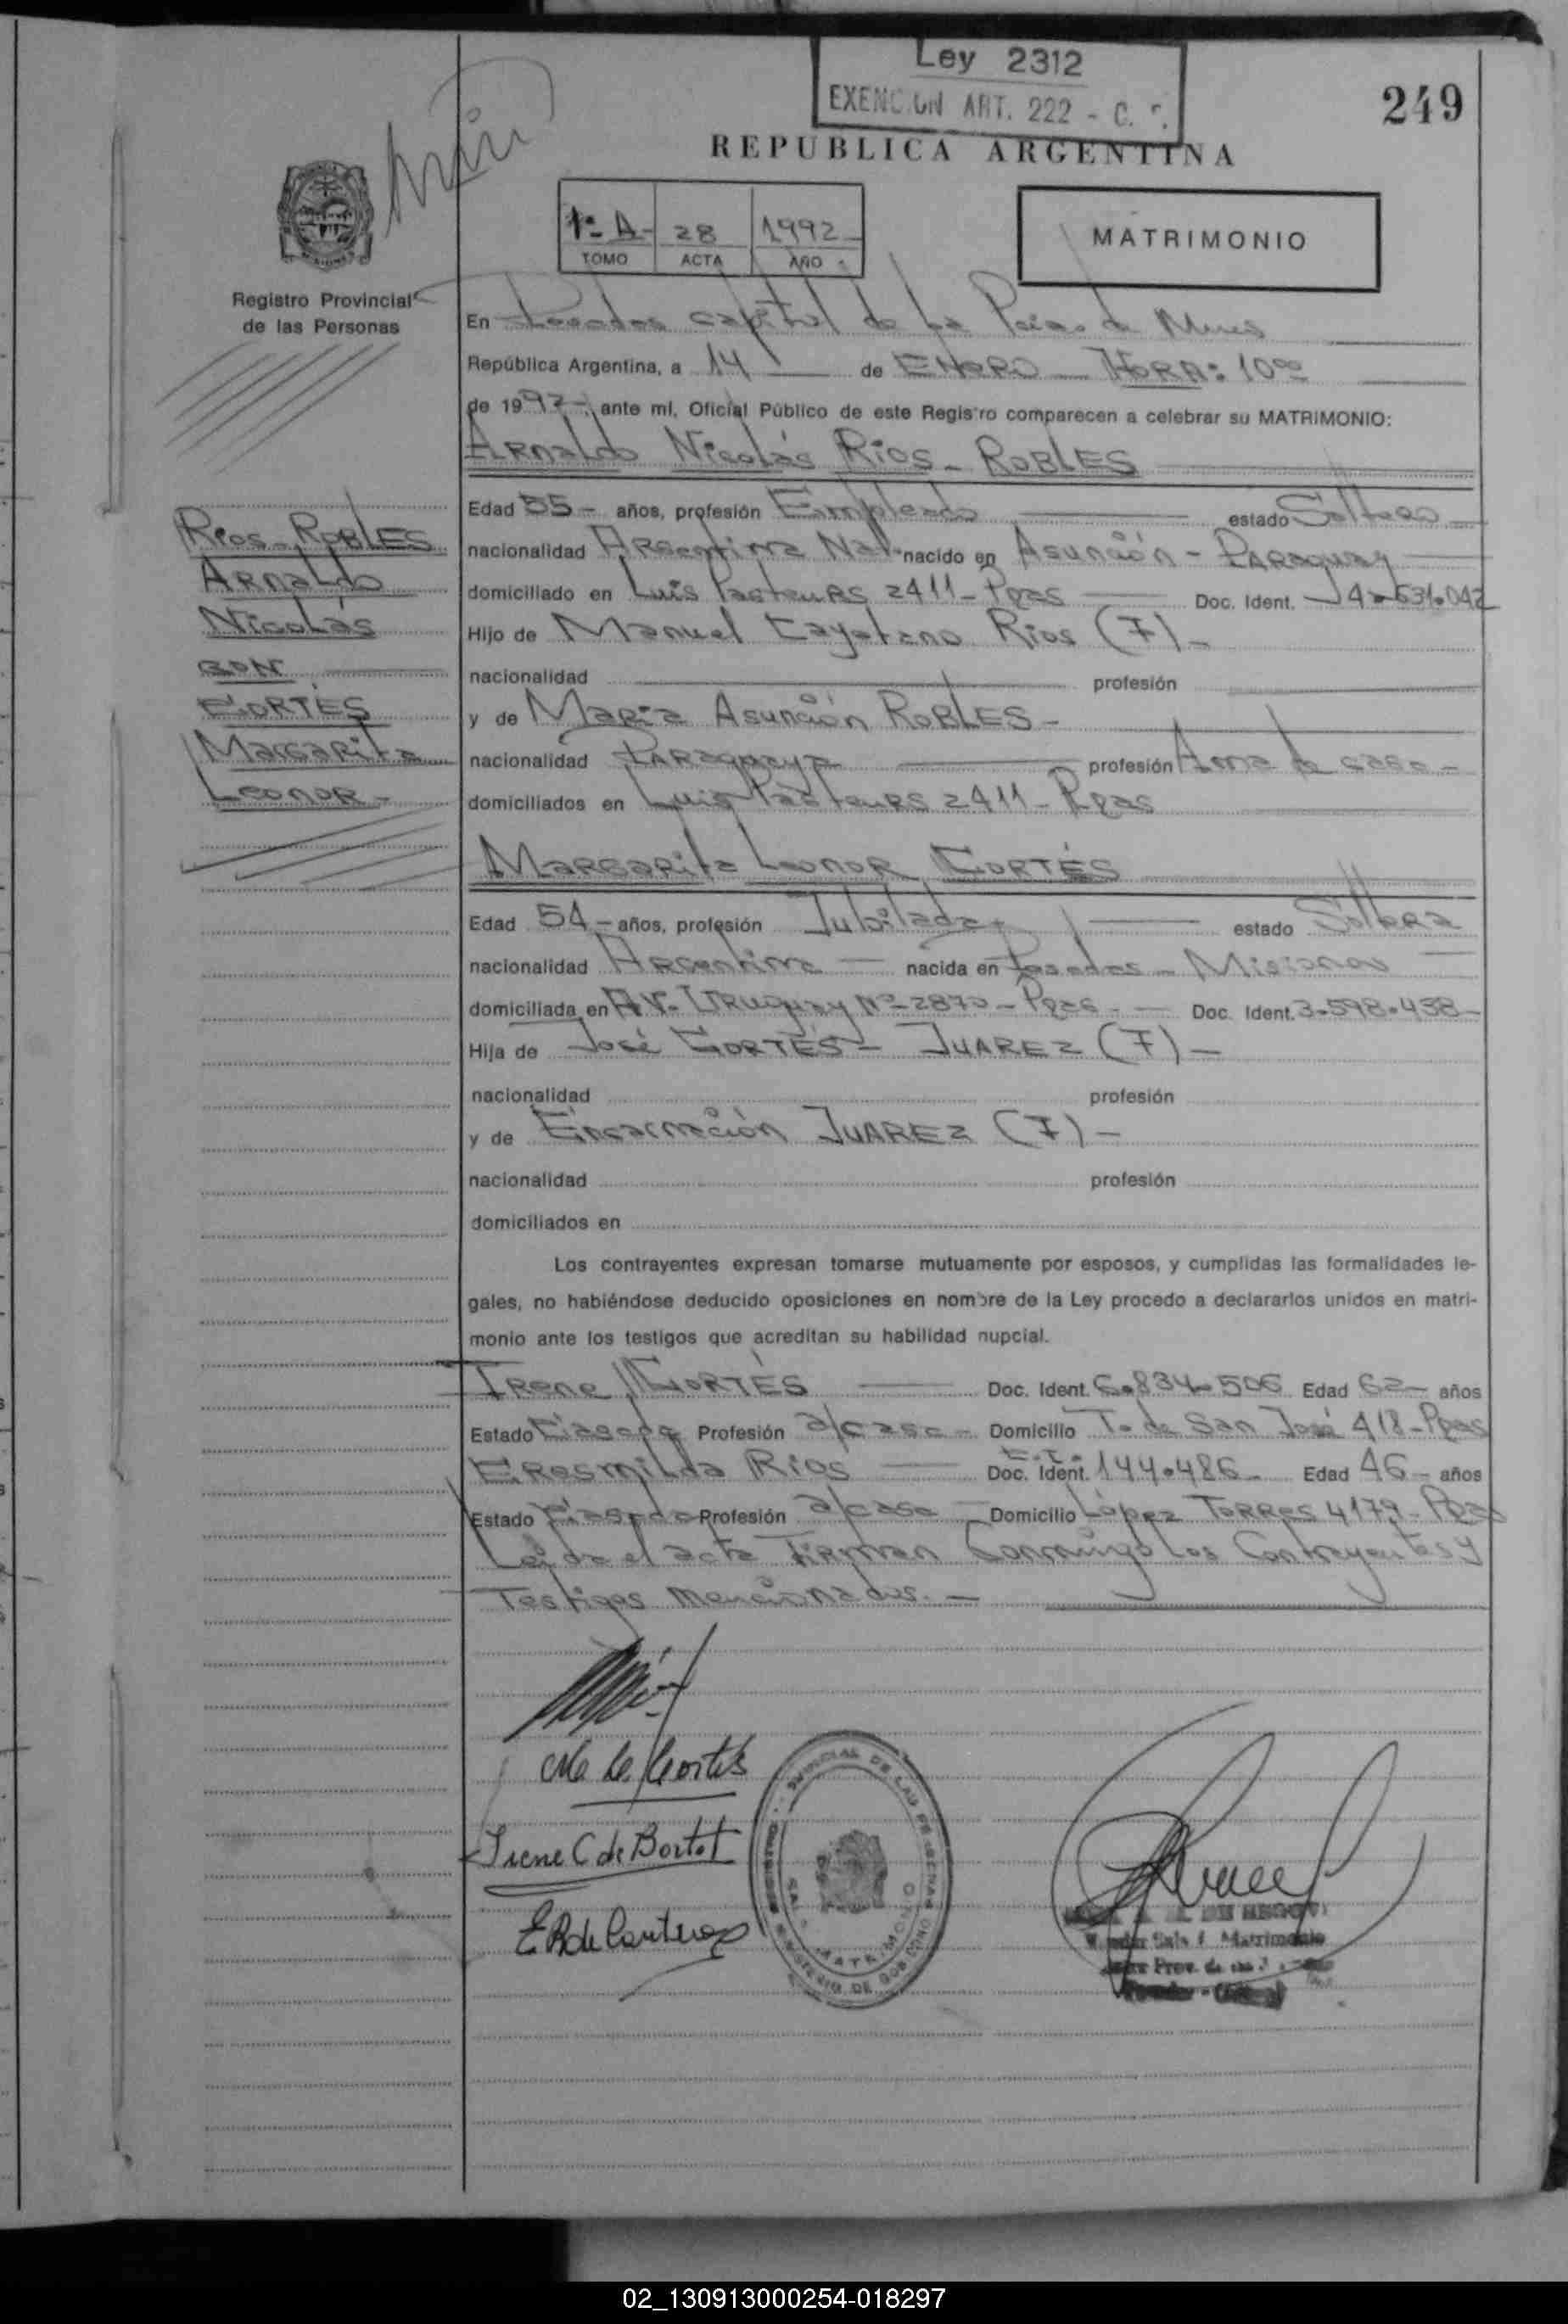 Ley 2312
EXENCION ART. 222 - C.
249
REPUBLICA ARGENTINA
1º A - 28 1992
TOMO ACTA AÑO
MATRIMONIO
Registro Provincial
de las Personas
En Posadas capital de la Pcia. de Mnes
República Argentina, a 14 de ENERO HORA: 10oo
de 1992, ante mí, Oficial Público de este Registro comparecen a celebrar su MATRIMONIO:
Arnaldo Nicolás Rios - ROBLES
Edad 55 - años, profesión Empleado estado Soltero
nacionalidad Argentina Nat. nacido en Asunción - PARAGUAY
domiciliado en Luis Pasteurs 2411 - Pdas Doc. Ident.
Hijo de Manuel Cayetano Rios (F) -
nacionalidad profesión
y de Maria Asunción ROBLES -
nacionalidad PARAGUAYA profesión Ama de casa -
domiciliados en Luis Pasteurs 2411 - Pdas
Rios - ROBLES
Arnaldo
Nicolás
CON
CORTÉS
Margarita
Leonor -
MARGARITA Leonor CORTÉS
Edad 54 - años, profesión Jubilada estado Soltera
nacionalidad Argentina nacida en Posadas - Misiones
domiciliada en AV. Uruguay Nº 2870 - Pdas - Doc. Ident. 3.598.438 -
Hija de José CORTÉS - JUAREZ (F) -
nacionalidad profesión
y de Encarnación JUAREZ (F) -
nacionalidad profesión
domiciliados en
Los contrayentes expresan tomarse mutuamente por esposos, y cumplidas las formalidades le-
gales, no habiéndose deducido oposiciones en nombre de la Ley procedo a declararlos unidos en matri-
monio ante los testigos que acreditan su habilidad nupcial.
Irene CORTÉS Doc. Ident. 6.834.506 Edad 62 - años
Estado Casada Profesión a/casa - Domicilio T. de San José 418 - Pdas
Eresmilda Rios Doc. Ident. C.I. 144.486 - Edad 46 - años
Estado Casada Profesión a/casa - Domicilio López Torres 4179 - Pdas
Leida el acta Firman Conmigo los Contrayentes y
Testigos Mencionados. -
Ma. L. Cortés
Irene C de Bortot
E R de Canteros
MATRIMONIO
MINISTERIO DE GOBIERNO
02_130913000254-018297